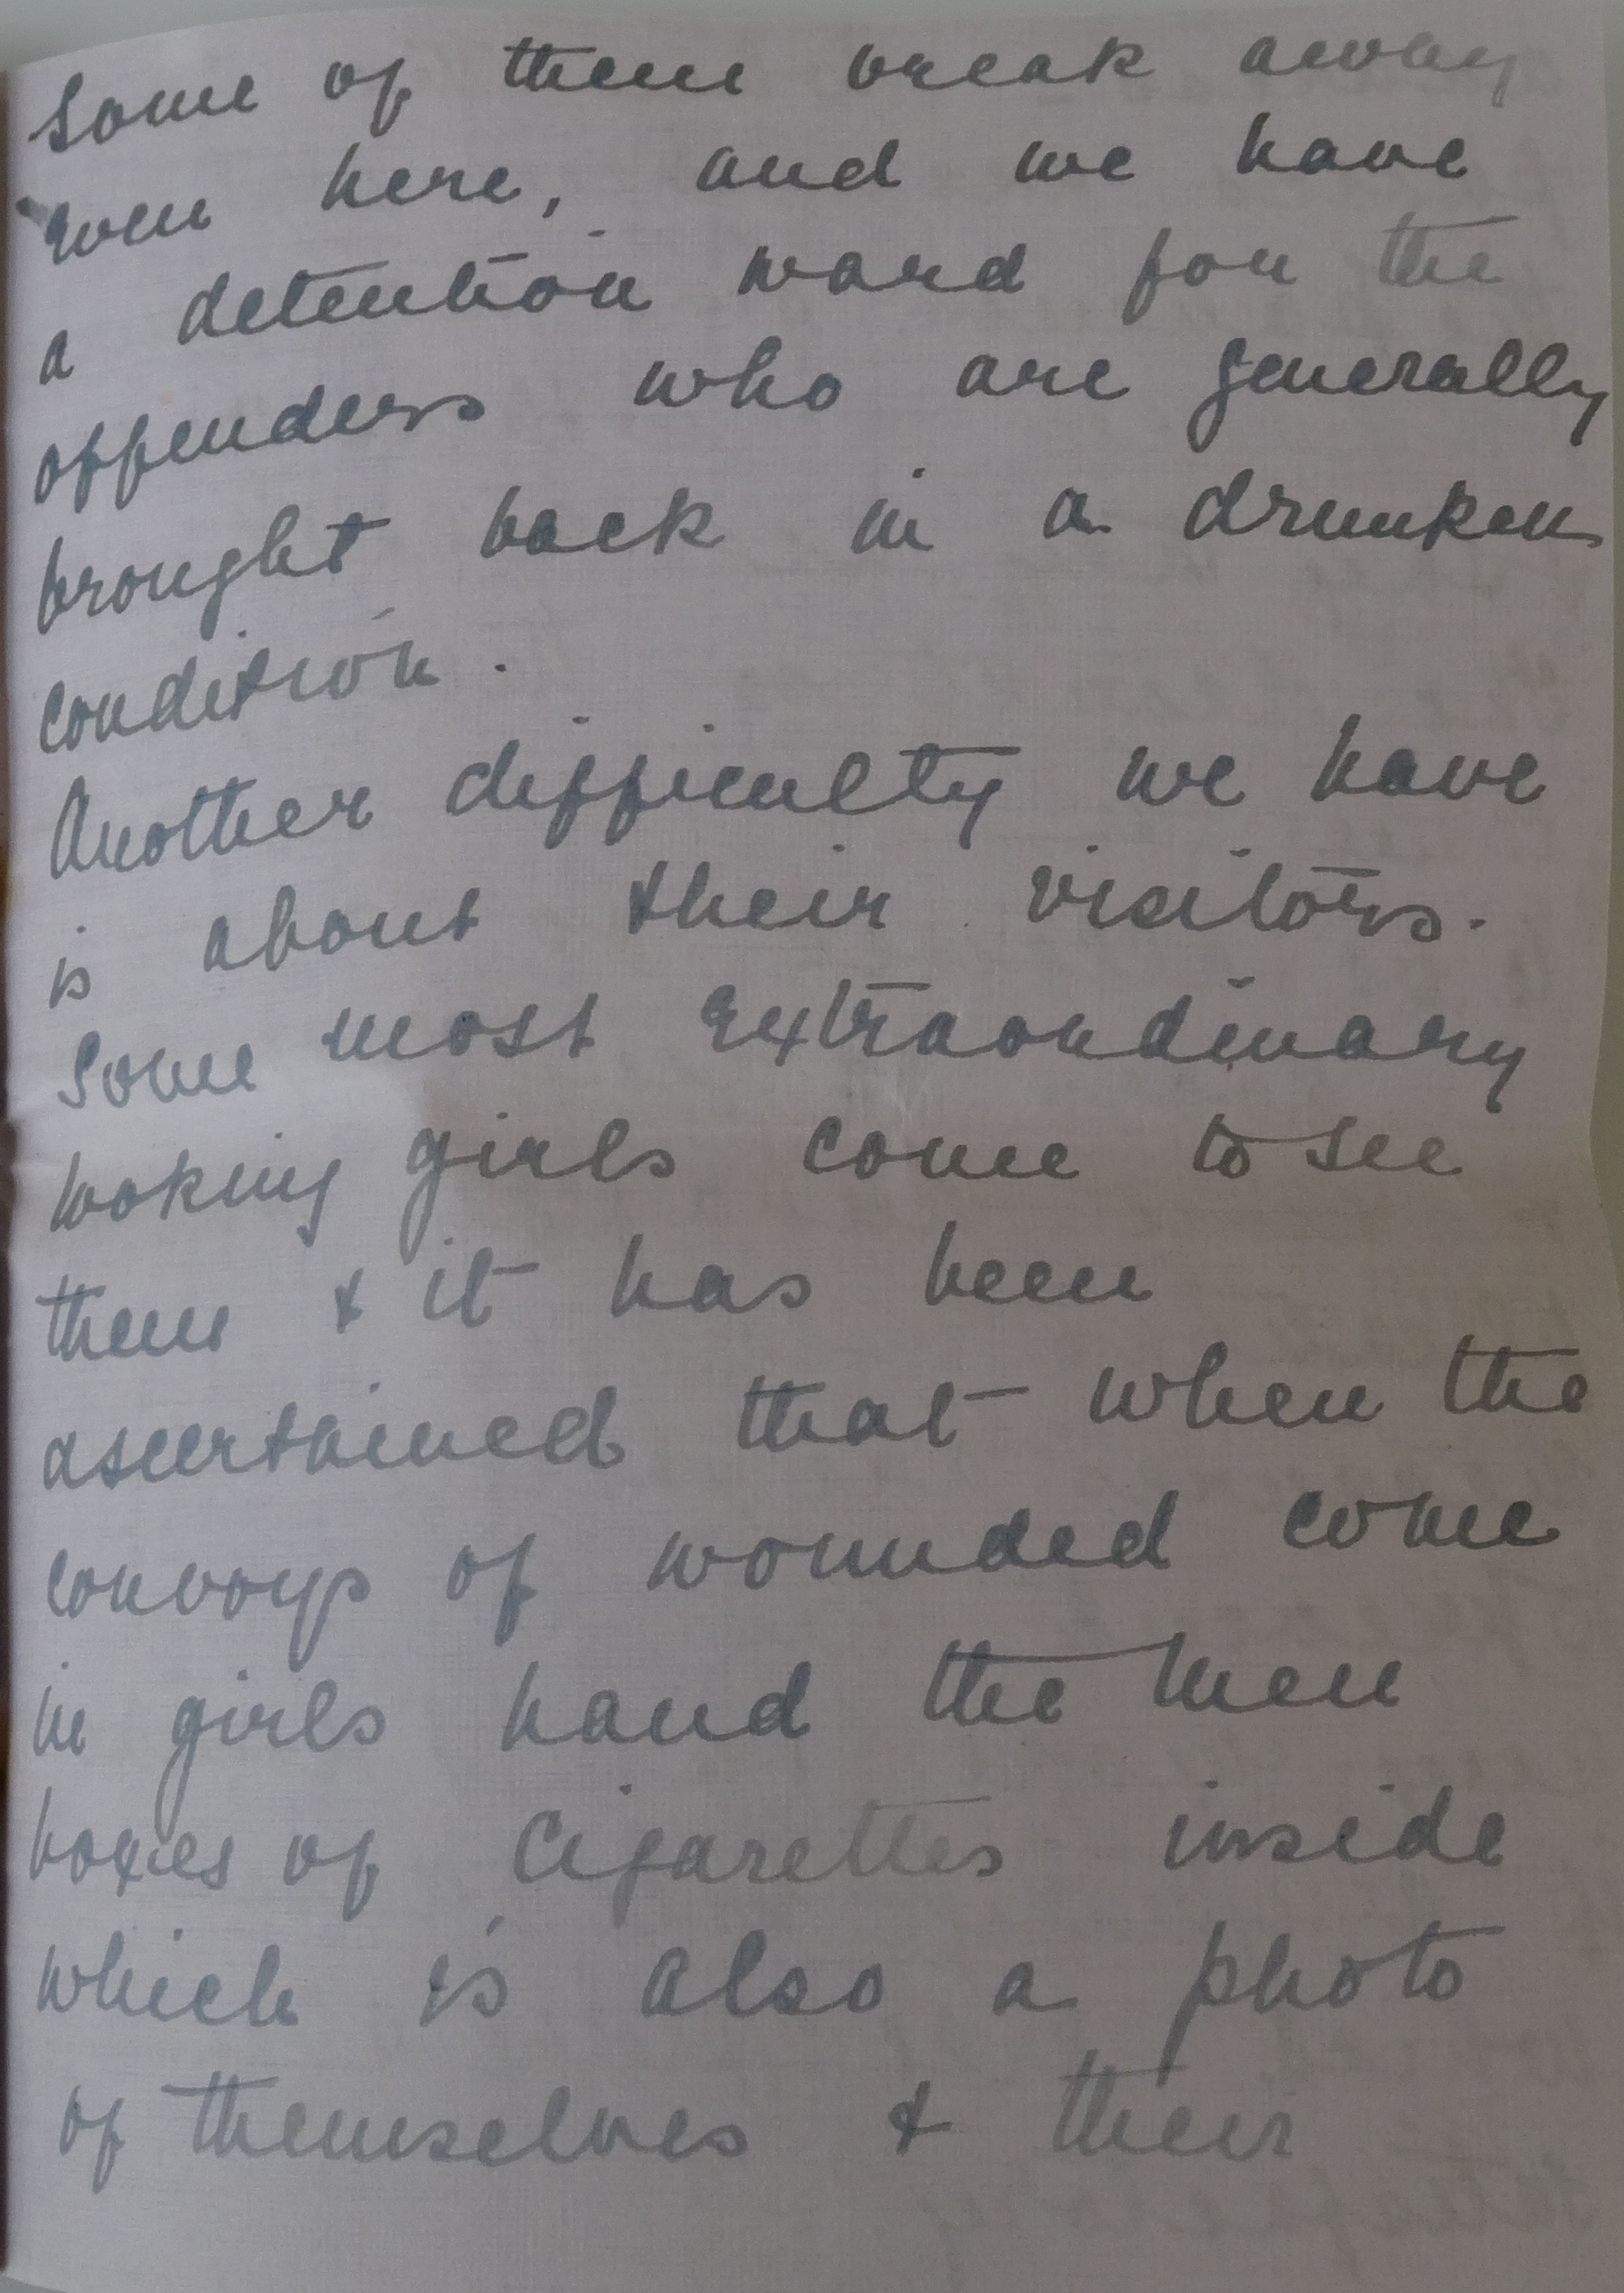 Some of them break away
even here, and we have
a detention ward for the
offenders who are generally
brought back in a drunken
condition.
Another difficulty we have
is about their visitors.
Some most extraordinary
looking girls come to see
them & it has been
ascertained that when the
convoys of wounded come
in girls hand the men
boxes of cigarettes inside
which is also a photo
of themselves & their